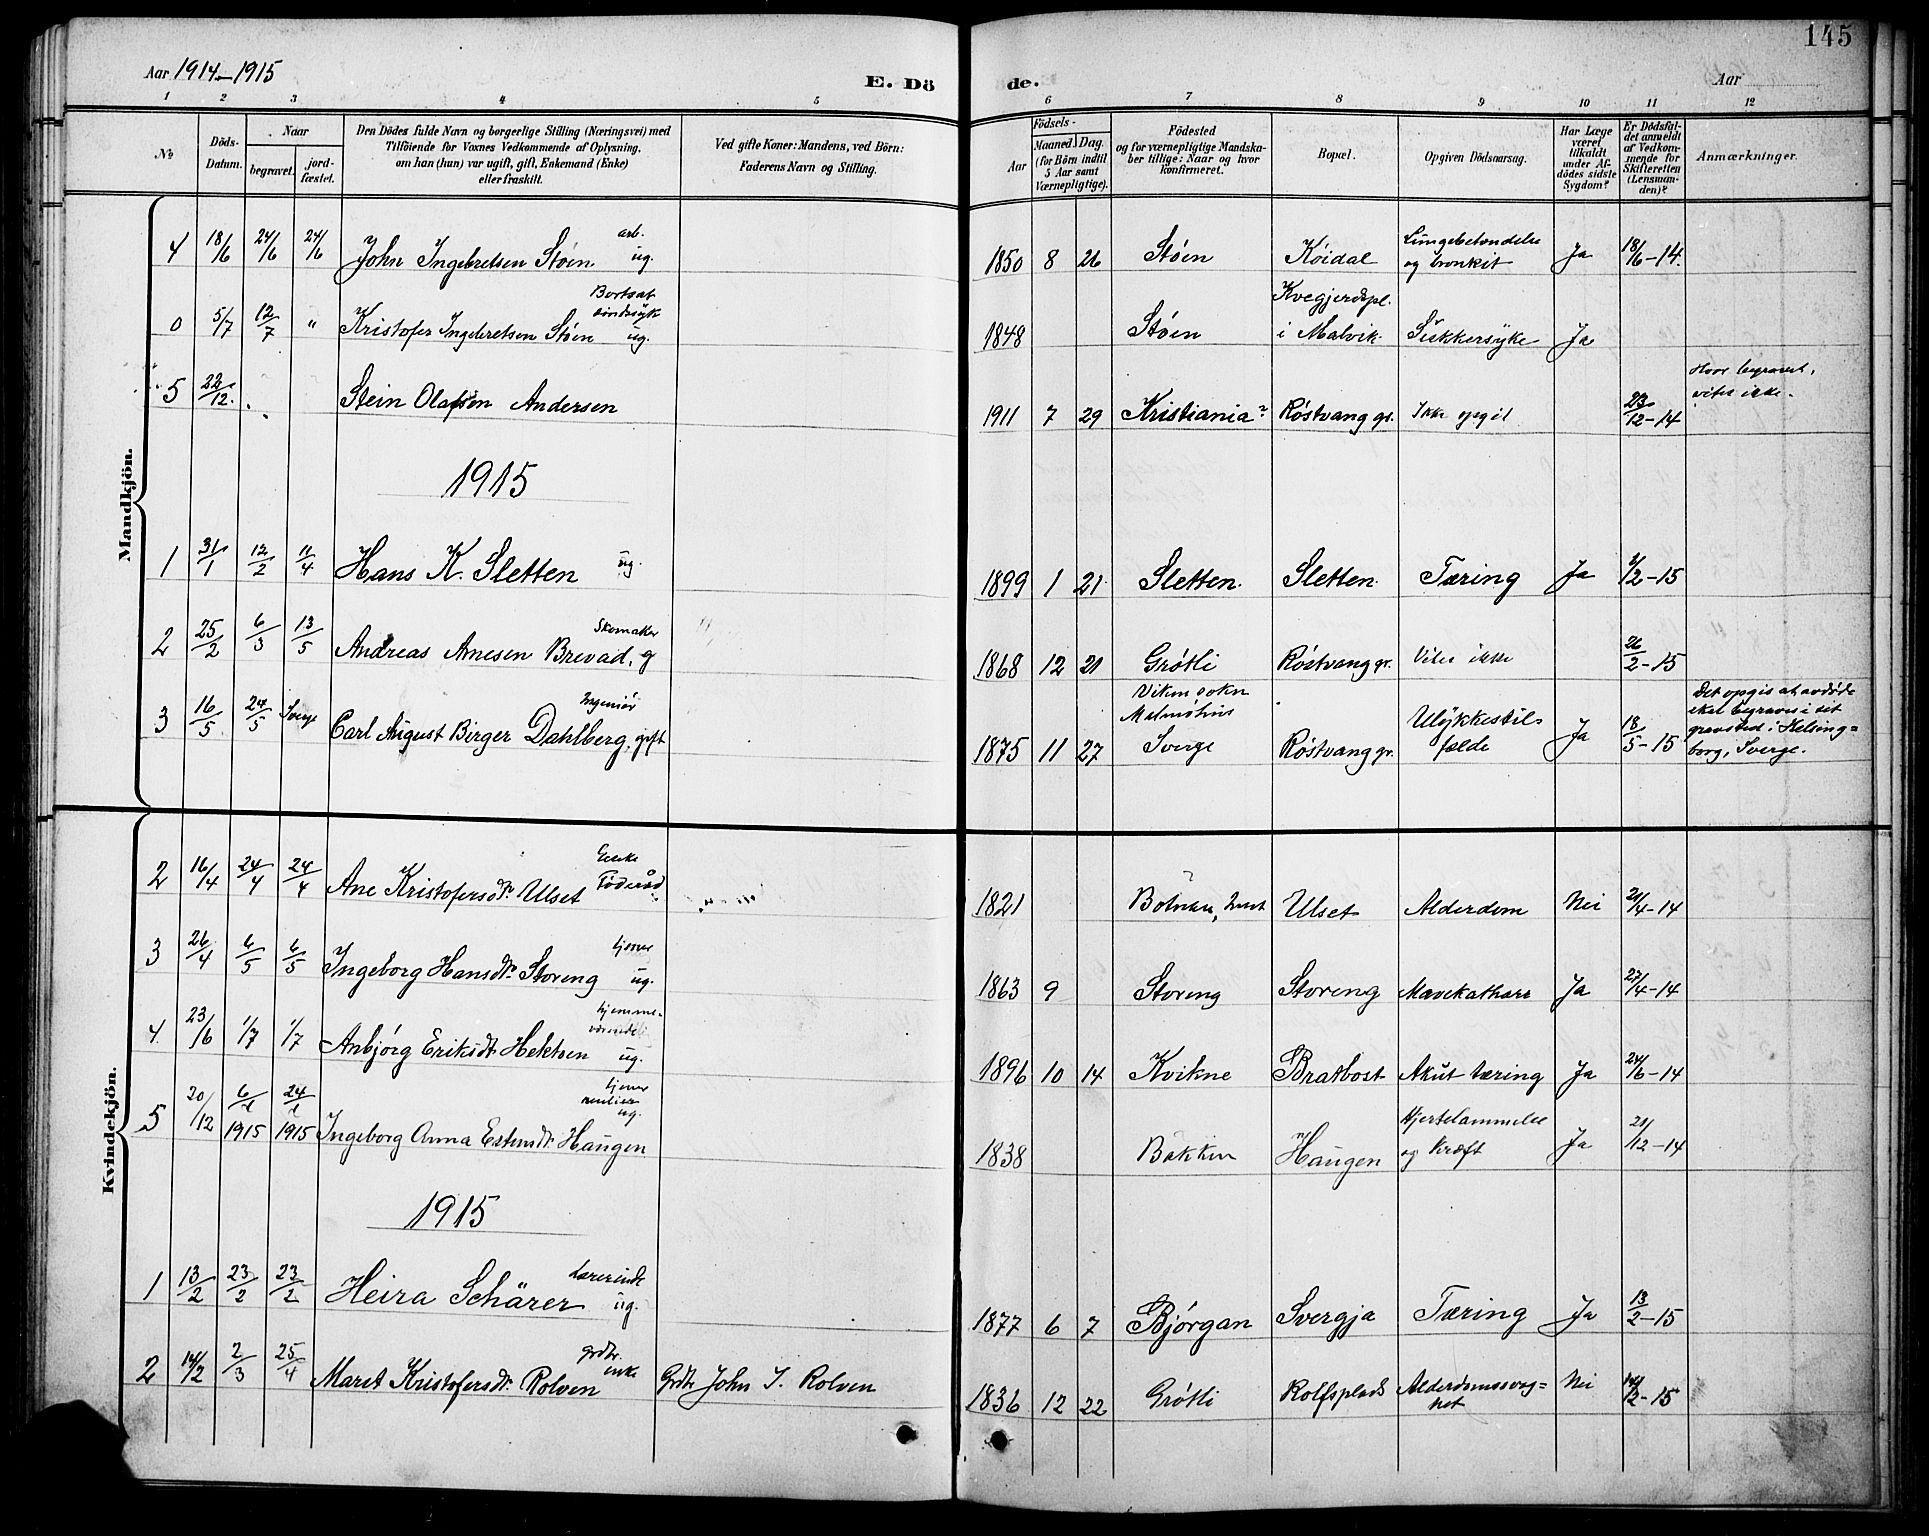 145
Aar 1914-1915
E. Dö
de.
Aar
1 2 3 4 5 6 7 8 9 10 11 12
No
Döds-
Datum.
Naar
begravet.
jord-
fæstet.
Den Dödes fulde Navn og borgerlige Stilling (Næringsvei) med
Tilföiende for Voxnes Vedkommende af Oplysning,
om han (hun) var ugift, gift, Enkemand (Enke)
eller fraskilt.
Ved gifte Koner: Mandens, ved Börn:
Faderens Navn og Stilling.
Födsels-
Aar
Maaned. Dag.
(for Börn indtil
5 Aar samt
Værnepligtige).
Födested
og for værnepligtige Mandska-
ber tillige: Naar og hvor
konfirmeret.
Bopæl.
Opgiven Dödsaarsag.
Har Læge
været
tilkaldt
under Af-
dödes sidste
Sygdom?
Er Dødsfal-
det anmeldt
af Vedkom-
mende for
Skifteretten
(Lensman-
den)?
Anmærkninger.
Mandkjön.
4 18/6 24/6 24/6 John Ingebretsen Støen arb. ug. 1850 8 26 Støen Køidal Lungebetændelse og bronkit Ja 18/6-14.
0 5/7 12/7 " Kristofer Ingebretsen Støen Bortsat sindssyk ug. 1848 Støen Kvegjerdspl. i Malvik Sukkersyke Ja
5 22/12. Stein Olafsen Andersen 1911 7 29 Kristiania? Røstvang gr. Ikke opgit 23/12-14 Hvor begravet, vites ikke.
1915
1 31/1 12/2 11/4 Hans K. Sletten ug. 1899 1 21 Sletten. Sletten. Tæring Ja 1/2-15
2 25/2 6/3 13/5 Andreas Arnesen Brevad, g Skomaker 1868 12 21 Grøtli Røstvang gr. Vites ikke 26/2-15
3 16/5 24/5 Sverge Carl August Birger Dahlberg, gift Ingeniør 1875 11 27 Viken sokn Malmøhus Sverge Røstvang gr. Ulykkestil-
fælde Ja 18/5-15 Det opgis at avdøde
skal begraves i sit
gravsted i Helsing=
borg, Sverge.
Kvindekjön.
2 16/4 24/4 24/4 Ane Kristofersdtr. Ulset Enke Føderåd 1821 Ulset Alderdom Nei 21/4-14
3 26/4 6/5 6/5 Ingeborg Hansdtr. Storeng tjener ug. 1863 9 Storeng Storeng Mavekatharr Ja 27/4-14
4 23/6 1/7 1/7 Anbjørg Eriksdtr. Hektoen hjemme-
værende ug. 1896 10 14 Kvikne Bratbost Akut tæring Ja 24/6-14
5 20/12 6/1 1915 24/1 1915 Ingeborg Anna Estensdtr. Haugen ug. 1838 Bakken Haugen Hjertelammelse
og kræft Ja 21/12-14
1915
1 13/2 23/2 23/2 Heira Schärer Lærerinde ug. 1877 6 7 Bjørgan Svergja Tæring Ja 13/2-15
2 14/2 2/3 25/4 Marit Kristofersdtr. Rolven grdbr. enke Grdbr John J. Rolven 1836 12 22 Grøtli Rolfsplads Alderdomssvag=
het Nei 14/2-15